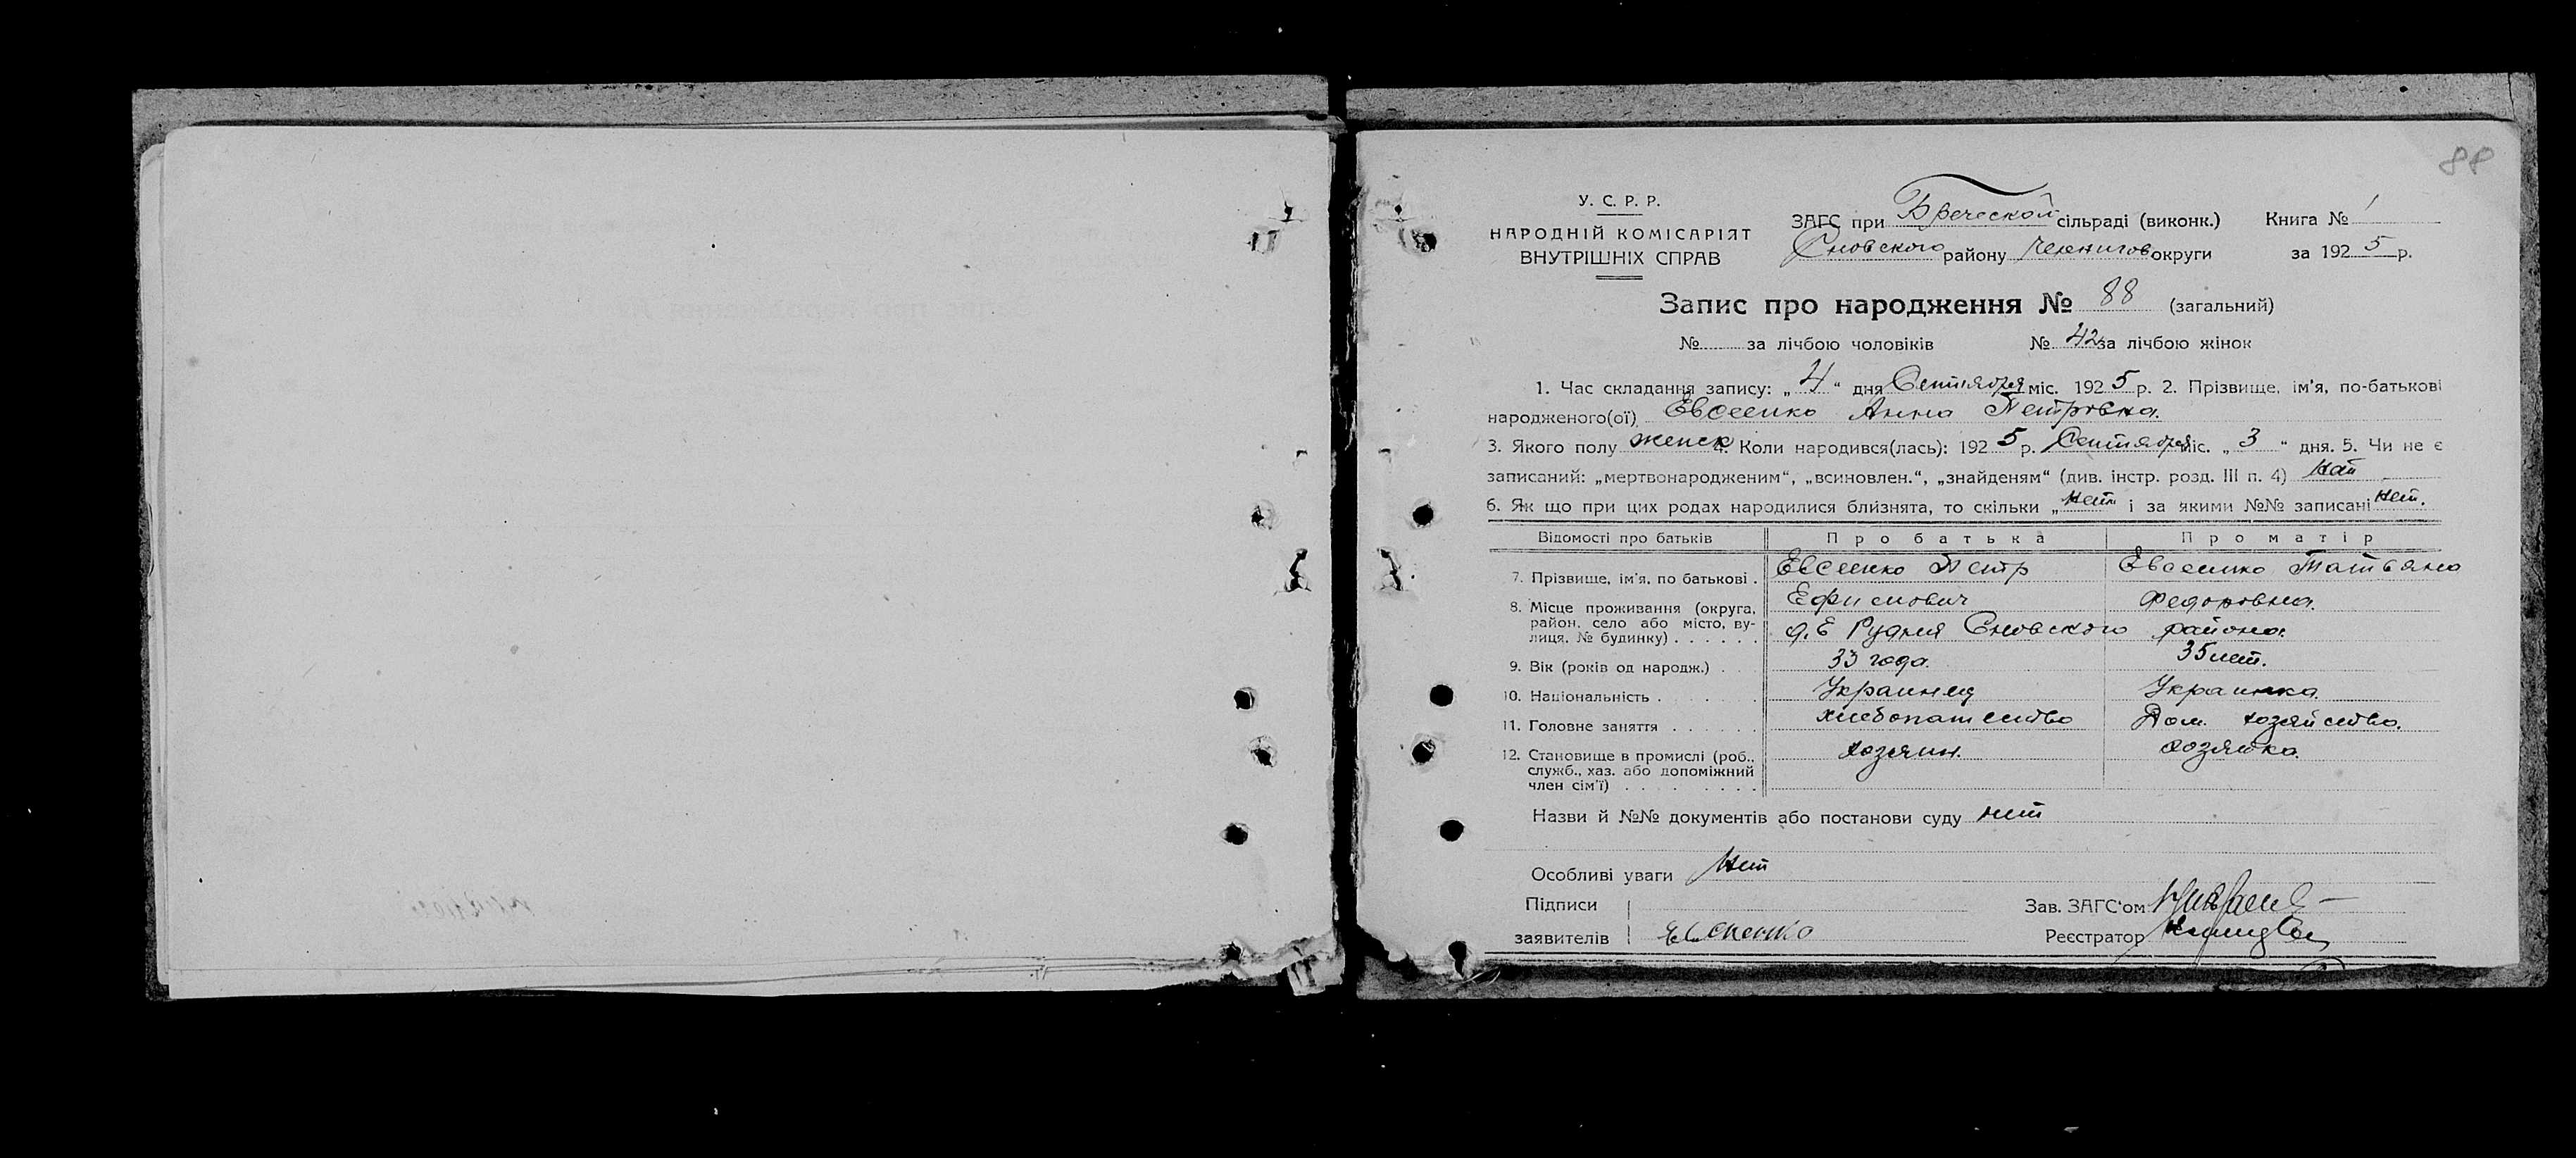 88
У. С. Р. Р.
НАРОДНІЙ КОМІСАРІЯТ
ВНУТРІШНІХ СПРАВ
ЗАГС при Бреческой сільраді (виконк.) Книга № 1
Сновского району Чернигов округи за 1925 р.
Запис про народження № 88 (загальний)
№ за лічбою чоловіків № 42 за лічбою жінок
1. Час складання запису: „4“ дня Сентября міс. 1925 р. 2. Прізвище, ім'я, по-батькові
народженого(ої) Евсеенко Анна Петровна.
3. Якого полу женск 4. Коли народився(лась): 1925 р. Сентября міс. „3“ дня. 5. Чи не є
записаний: „мертвонародженим“, „всиновлен.“, „знайденям“ (див. інстр. розд. III п. 4) нет
6. Як що при цих родах народилися близнята, то скільки „нет“ і за якими №№ записані нет.
Відомості про батьків Про батька Про матір
7. Прізвище, ім'я, по батькові . Евсеенко Петр Евсеенко Татьяна
Ефимович Федоровна.
8. Місце проживання (округа,
район, село або місто, ву-
лиця, № будинку) . . . . . . д. Е Рудня Сновского района.
9. Вік (років од народж.) . . 33 года. 35 лет.
10. Національність . . . . . Украинец Украинка.
11. Головне заняття . . . . . . хлебопашество Дом. хозяйство.
12. Становище в промислі (роб.,
служб., хаз. або допоміжний
член сім'ї) . . . . . . . . хозяин. хозяйка.
Назви й №№ документів або постанови суду нет
Особливі уваги Нет
Підписи
заявителів Евсеенко
Зав. ЗАГС'ом
Реєстратор